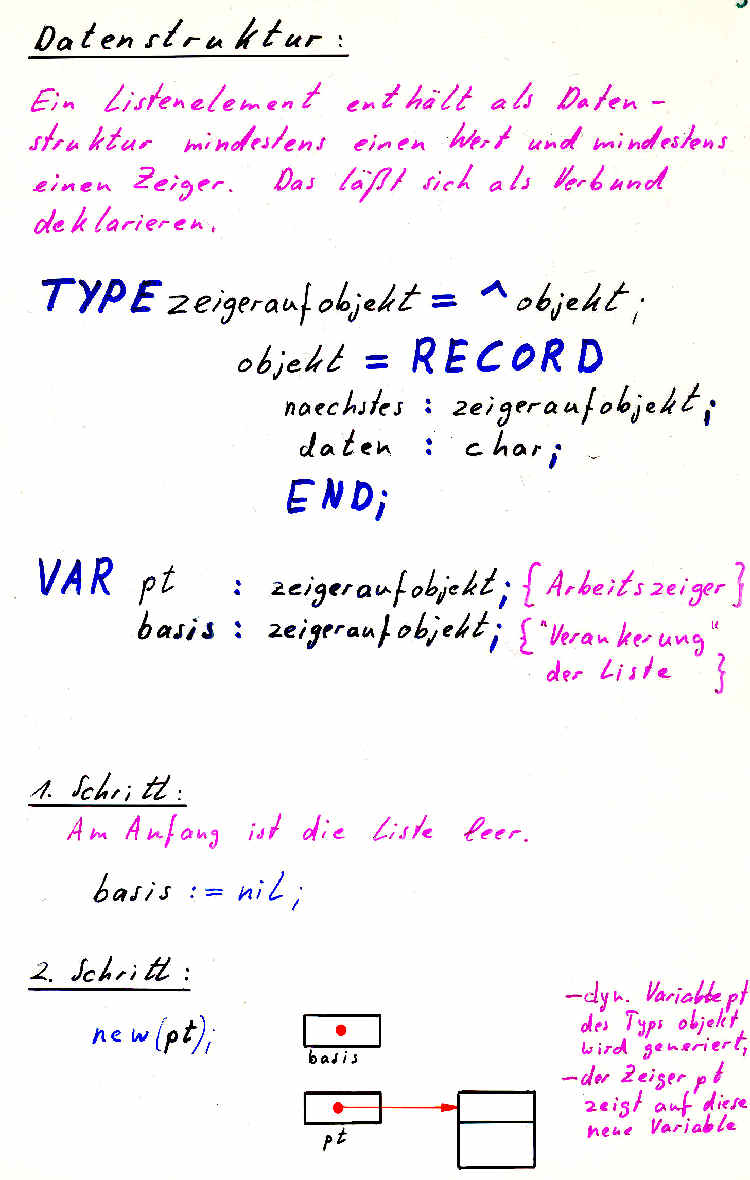 Datenstruktur:
Ein Listenelement enthält als Daten-
struktur mindestens einen Wert und mindestens
einen Zeiger. Das läßt sich als Verbund
deklarieren.
TYPE zeigeraufobjekt = ^objekt;
objekt = RECORD
naechstes : zeigeraufobjekt;
daten : char;
END;
VAR pt : zeigeraufobjekt; {Arbeitszeiger}
basis : zeigeraufobjekt; {"Verankerung"
der Liste }
1. Schritt:
Am Anfang ist die Liste leer.
basis := nil;
2. Schritt:
new(pt);
basis
pt
-dyn. Variable pt
des Typs objekt
wird generiert,
-der Zeiger pt
zeigt auf diese
neue Variable